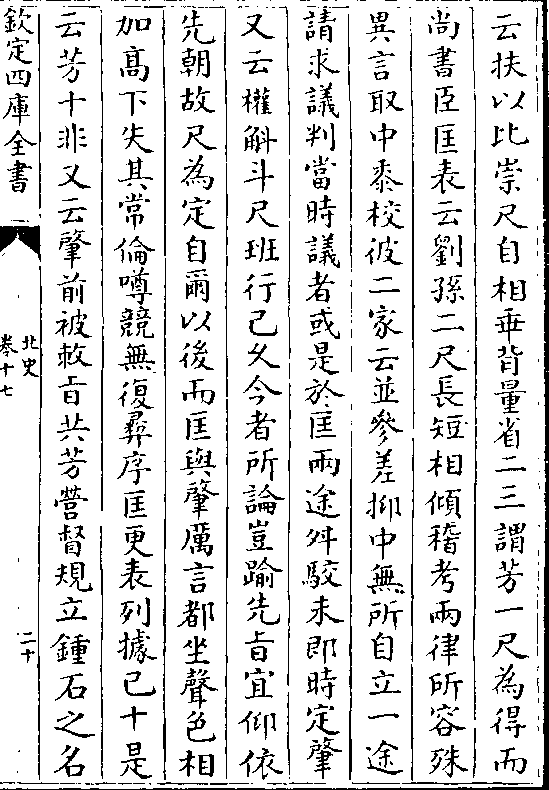 云扶以比崇尺自相乖背量省二三謂芳一尺為得而
尚書臣匡表云劉孫二尺長短相傾稽考兩律所容殊
異言取中黍校彼二家云並參差抑中無所自立一途
請求議判當時議者或是於匡兩途舛駮未即時定肇
又云權斛斗尺班行已久今者所論豈踰先旨宜仰依
先朝故尺為定自爾以後而匡與肇厲言都坐聲色相
加髙下失其常倫噂競無復彞序匡更表列據已十是
云芳十非又云肇前被敕旨共芳營督規立鍾石之名
欽定四庫全書
北史
卷十七
二十